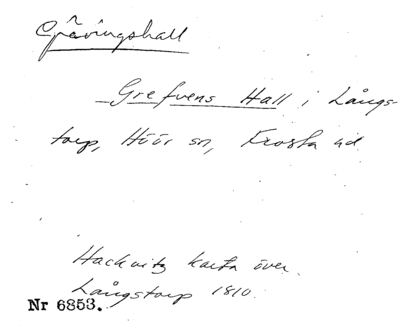 Grävingshall
Grefvens Hall i Långs-
torp, Höör sn, Frosta hd
Hackwitz karta över
Långstorp 1810.
Nr 6853.